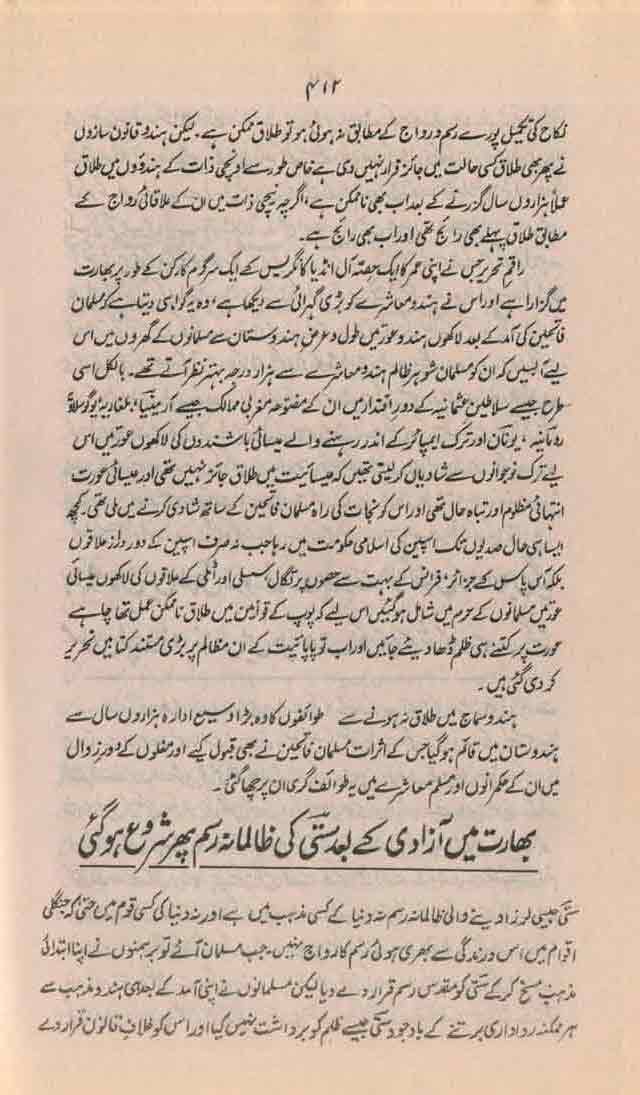 ۴۱۲
نکاح کی تکمیل پورے رسم و رواج کے مطابق نہ ہوئی ہو تو طلاق ممکن ہے۔ لیکن ہندو قانون سازوں
نے پھر بھی طلاق کسی حالت میں جائز قرار نہیں دی ہے خاص طور سے اونچی ذات کے ہندوؤں میں طلاق
عملاً ہزاروں سال گزرنے کے بعد اب بھی ناممکن ہے، اگرچہ نیچی ذات میں ان کے علاقائی رواج کے
مطابق طلاق پہلے بھی رائج تھی اور اب بھی رائج ہے۔
راقم تحریر جس نے اپنی عمر کا ایک حصہ آل انڈیا کانگریس کے ایک سرگرم کارکن کے طور پر بھارت
میں گزارا ہے اور اس نے ہندو معاشرے کو بڑی گہرائی سے دیکھا ہے، وہ یہ گواہی دیتا ہے کہ مسلمان
فاتحین کی آمد کے بعد لاکھوں ہندو عورتیں طول و عرض ہندوستان سے مسلمانوں کے گھروں میں اس
لیے آبسیں کہ ان کو مسلمان شوہر ظالم ہندو معاشرے سے ہزار درجہ بہتر نظر آتے تھے۔ بالکل اسی
طرح جیسے سلاطین عثمانیہ کے دور اقتدار میں ان کے مفتوحہ مغربی ممالک جیسے آرمینیا، بلغاریہ یوگوسلاویہ
رومانیہ، یونان اور ترک ایمپائر کے اندر رہنے والے عیسائی باشندوں کی لاکھوں عورتیں اس
لیے ترک نوجوانوں سے شادیاں کر لیتی تھیں کہ عیسائیت میں طلاق جائز نہیں تھی اور عیسائی عورت
انتہائی مظلوم اور تباہ حال تھی اور اس کو نجات کی راہ مسلمان فاتحین کے ساتھ شادی کرنے میں ملی تھی۔ کچھ
ایسا ہی حال صدیوں تک اسپین کی اسلامی حکومت میں رہا جب نہ صرف اسپین کے دور دراز علاقوں
بلکہ آس پاس کے جزائر، فرانس کے بہت سے حصوں پرتگال سسلی اور اٹلی کے علاقوں کی لاکھوں عیسائی
عورتیں مسلمانوں کے حرم میں شامل ہوگئیں اس لیے کہ پوپ کے قوانین میں طلاق ناممکن عمل تھا چاہے
عورت پر کتنے ہی ظلم ڈھا دیئے جائیں اور اب تو پاپائیت کے ان مظالم پر بڑی مستند کتابیں تحریر
کر دی گئی ہیں۔
ہندو سماج میں طلاق نہ ہونے سے طوائفوں کا وہ بڑا وسیع ادارہ ہزاروں سال سے
ہندوستان میں قائم ہوگیا جس کے اثرات مسلمان فاتحین نے بھی قبول کیے اور مغلوں کے دور زوال
میں ان کے حکمرانوں اور مسلم معاشرے میں یہ طوائف گری ان پر چھا گئی۔
بھارت میں آزادی کے بعد ستی کی ظالمانہ رسم پھر شروع ہو گئی
ستی جیسی لرزا دینے والی ظالمانہ رسم نہ دنیا کے کسی مذہب میں ہے اور نہ دنیا کی کسی قوم میں حتیٰ کہ جنگلی
اقوام میں اس درندگی سے بھری ہوئی رسم کا رواج نہیں۔ جب مسلمان آئے تو برہمنوں نے اپنا ابتدائی
مذہب مسخ کر کے ستی کو مقدس رسم قرار دے دیا لیکن مسلمانوں نے اپنی آمد کے بعد ہی ہندو مذہب سے
ہر ممکنہ رواداری برتنے کے باوجود ستی جیسے ظلم کو برداشت نہیں کیا اور اس کو خلاف قانون قرار دے